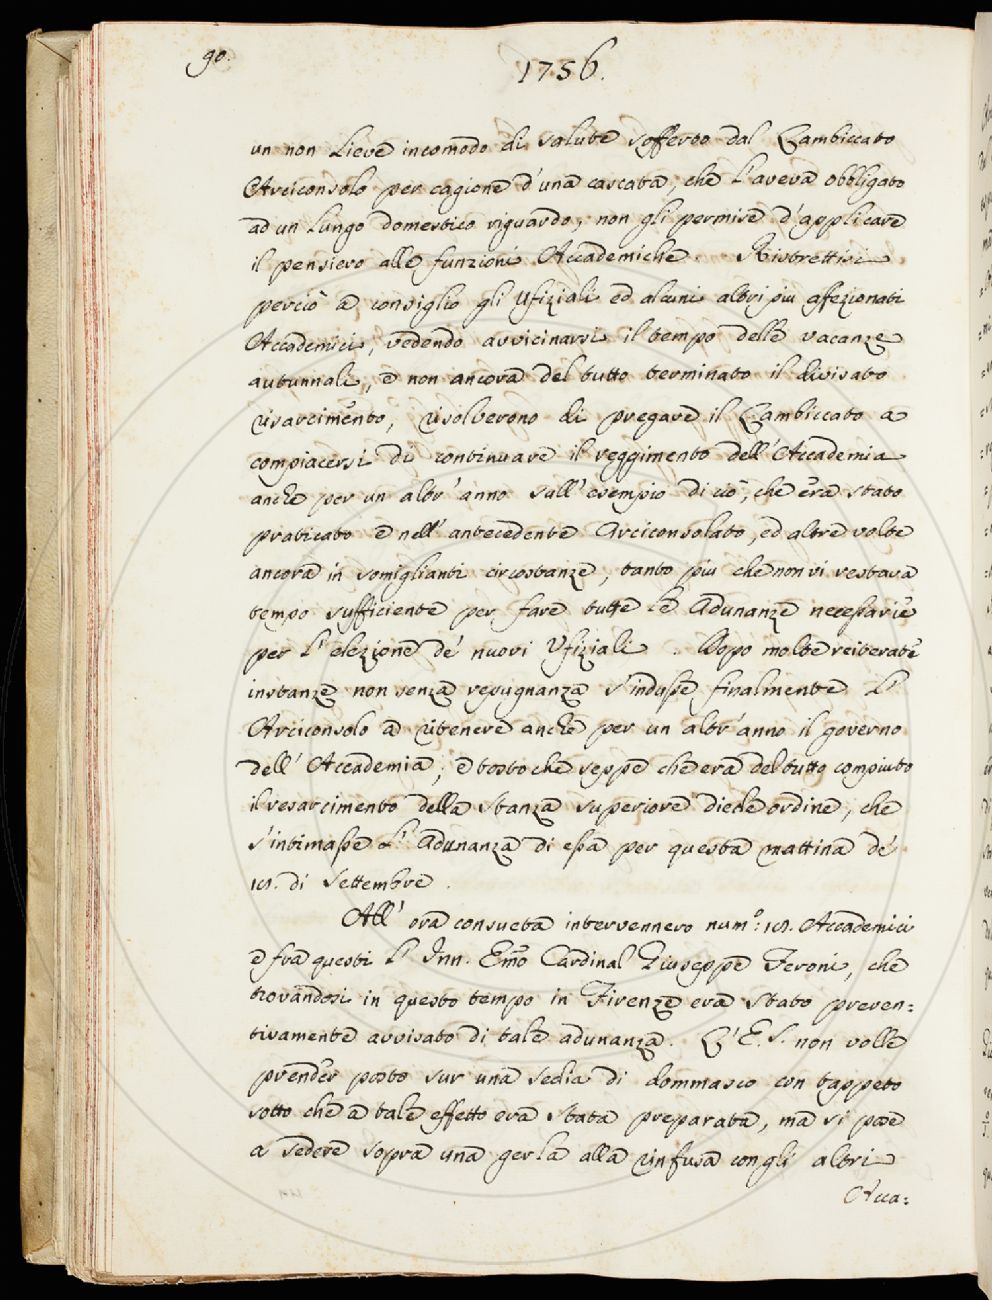 90.
1756.
un non lieve incomodo di salute sofferto dal Lambiccato
Arciconsolo per cagione d'una cascata, che l'aveva obbligato
ad un lungo domestico riguardo, non gli permise d'applicare
il pensiero alle funzioni Accademiche. Ristrettisi
perciò a consiglio gli Ufiziali ed alcuni altri piu afezionati
Accademici, vedendo avvicinarsi il tempo delle vacanze
autunnali, e non ancora del tutto terminato il divisato
risarcimento, risolverono di pregare il Lambiccato a
compiacersi di continuare il reggimento dell'Accademia
anche per un altr'anno sull'esempio di ciò, che era stato
praticato e nell'antecedente Arciconsolato, ed altre volte
ancora in somiglianti circostanze, tanto piu che non vi restava
tempo sufficiente per fare tutte le Adunanze necessarie
per l'elezione de' nuovi Ufiziali. Dopo molte reiterate
instanze non senza repugnanza s'indusse finalmente l'
Arciconsolo a ritenere anche per un altr'anno il governo
dell'Accademia; e tosto che seppe che era del tutto compiuto
il resarcimento della stanza superiore diede ordine, che
s'intimasse l'Adunanza di essa per questa mattina de'
di Settembre.
All'ora consueta intervennero num.o: Accademici
e fra questi l'Inn. Emo Cardinal Giuseppe Feroni, che
trovandosi in questo tempo in Firenze era stato preven=
tivamente avvisato di tale adunanza. L'E. S. non volle
prender posto sur una sedia di dommasco con tappeto
sotto che a tale effetto era stata preparata, ma si pose
a sedere sopra una gerla alla rinfusa con gli altri
Acca=